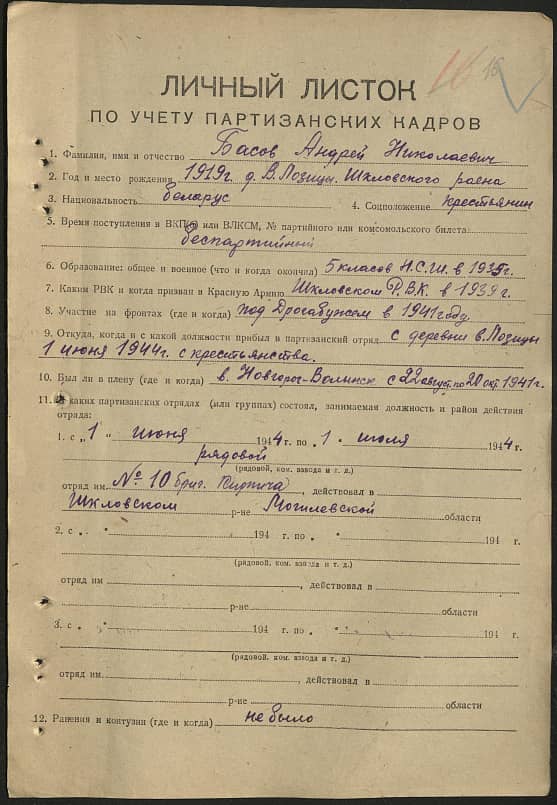 16 15
ЛИЧНЫЙ ЛИСТОК
ПО УЧЕТУ ПАРТИЗАНСКИХ КАДРОВ
1. Фамилия, имя и отчество Басов Андрей Николаевич
2. Год и место рождения 1919г. д. В. Лозицы. Шкловского раена
3. Национальность беларус 4. Соцположение крестьянин
5. Время поступления в ВКП(б) или ВЛКСМ, № партийного или комсомольского билета:
беспартийный
6. Образование: общее и военное (что и когда окончил) 5 класов Н.С.Ш. в 1935г.
7. Каким РВК и когда призван в Красную Армию Шкловском Р.В.К. в 1939г.
8. Участие на фронтах (где и когда) под Дрогабужем в 1941 году.
9. Откуда, когда и с какой должности прибыл в партизанский отряд с деревни в. Лозицы
1 июня 1944г. с крестьянства.
10. Был ли в плену (где и когда) в. Новгорог-Волынск с 22 август. по 20 окт 1941г.
11. В каких партизанских отрядах (или группах) состоял, занимаемая должность и район действия
отряда:
1. с „1" июня 1944 г. по „1" июля 1944 г.
рядовой
(рядовой, ком. взвода и т. д.)
отряд им. № 10 бриг. Кирпича, действовал в
Шкловском р-не Могилевской области
2. с „ " 194 г. по „ " 194 г.
(рядовой, ком. взвода и т. д.)
отряд им , действовал в
р-не области
3. с „ " 194 г. по „ " 194 г.
(рядовой, ком. взвода и т. д.)
отряд им. , действовал в
р-не области
12. Ранения и контузии (где и когда) не было